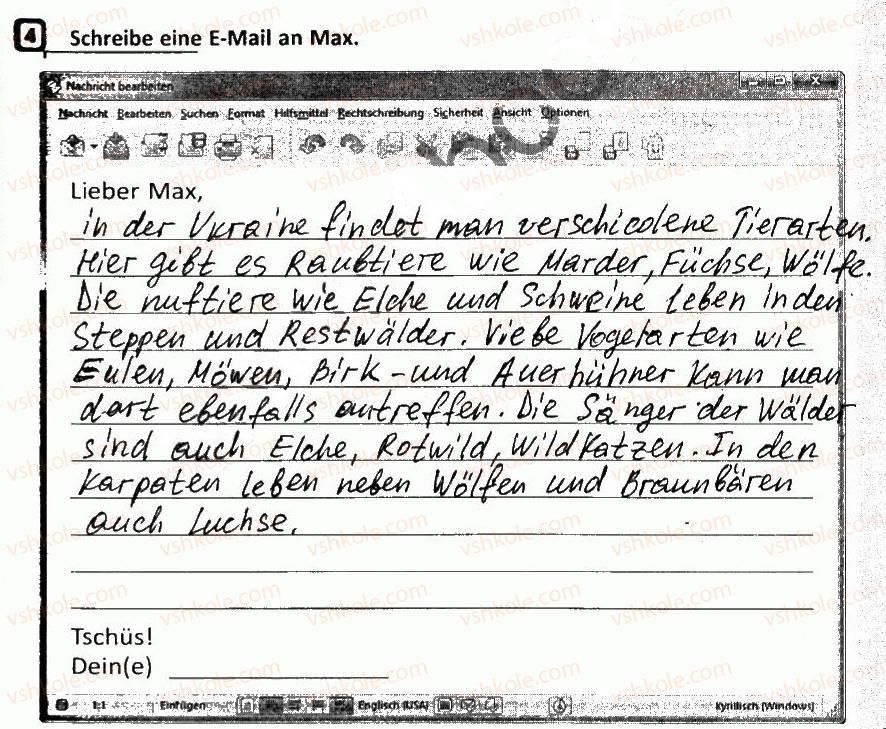 4 Schreibe eine E-Mail an Max.
Nachricht bearbeiten
Nachricht Bearbeiten Suchen Format Hilfsmittel Rechtschreibung Sicherheit Ansicht Optionen
Lieber Max,
in der Ukraine findet man verschicolene Tierarten.
Hier gibt es Raubtiere wie Marder, Füchse, Wölfe.
Die nuftiere wie Elche und Schweine leben in den
Steppen und Restwälder. Viebe Vogelarten wie
Eulen, Möwen, Birk - und Auerhühner kann man
dort ebenfalls antreffen. Die Sänger der Wälder
sind auch Elche, Rotwild, Wildkatzen. In den
Karpaten leben neben Wölfen und Braunbären
auch Luchse.
Tschüs!
Dein(e)
1:1 Einfügen Englisch (USA) Kyrillisch (Windows)
vshkole.com